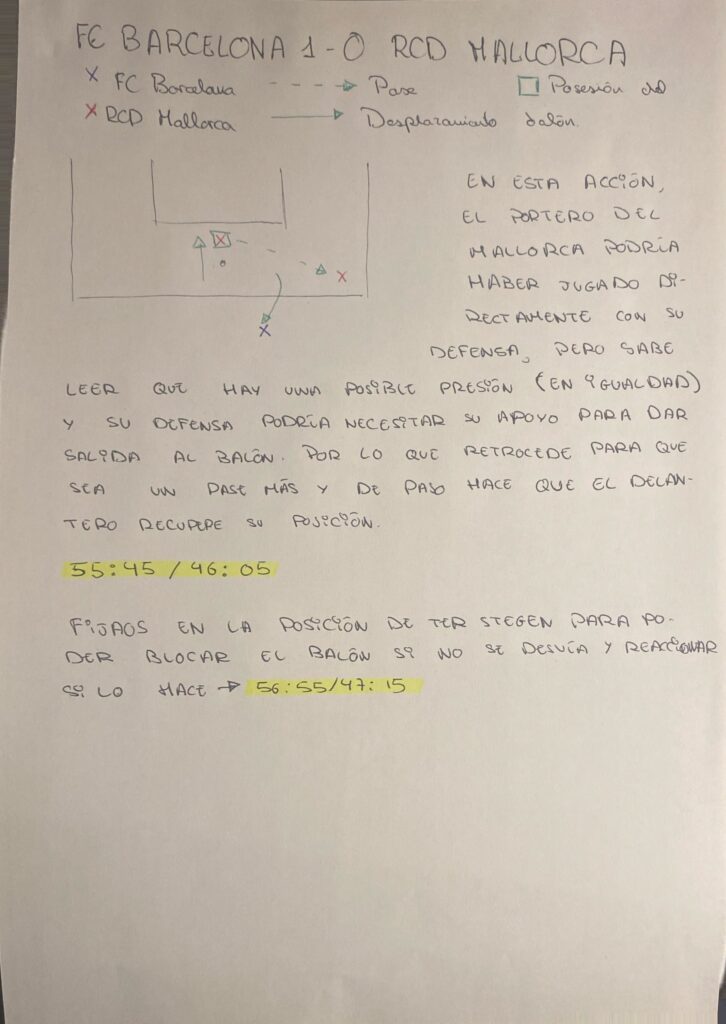 FC BARCELONA 1-0 RCD MALLORCA
X FC Barcelona - - - → Pase □ Posesión del
X RCD Mallorca → Desplazamiento balón.
EN ESTA ACCIÓN,
EL PORTERO DEL
MALLORCA PODRÍA
HABER JUGADO DI-
RECTAMENTE CON SU
DEFENSA, PERO SABE
LEER QUE HAY UNA POSIBLE PRESIÓN (EN IGUALDAD)
Y SU DEFENSA PODRÍA NECESITAR SU APOYO PARA DAR
SALIDA AL BALÓN. POR LO QUE RETROCEDE PARA QUE
SEA UN PASE MÁS Y DE PASO HACE QUE EL DELAN-
TERO RECUPERE SU POSICIÓN.
55:45 / 46:05
FIJAOS EN LA POSICIÓN DE TER STEGEN PARA PO-
DER BLOCAR EL BALÓN SI NO SE DESVÍA Y REACCIONAR
SI LO HACE → 56:55/47:15